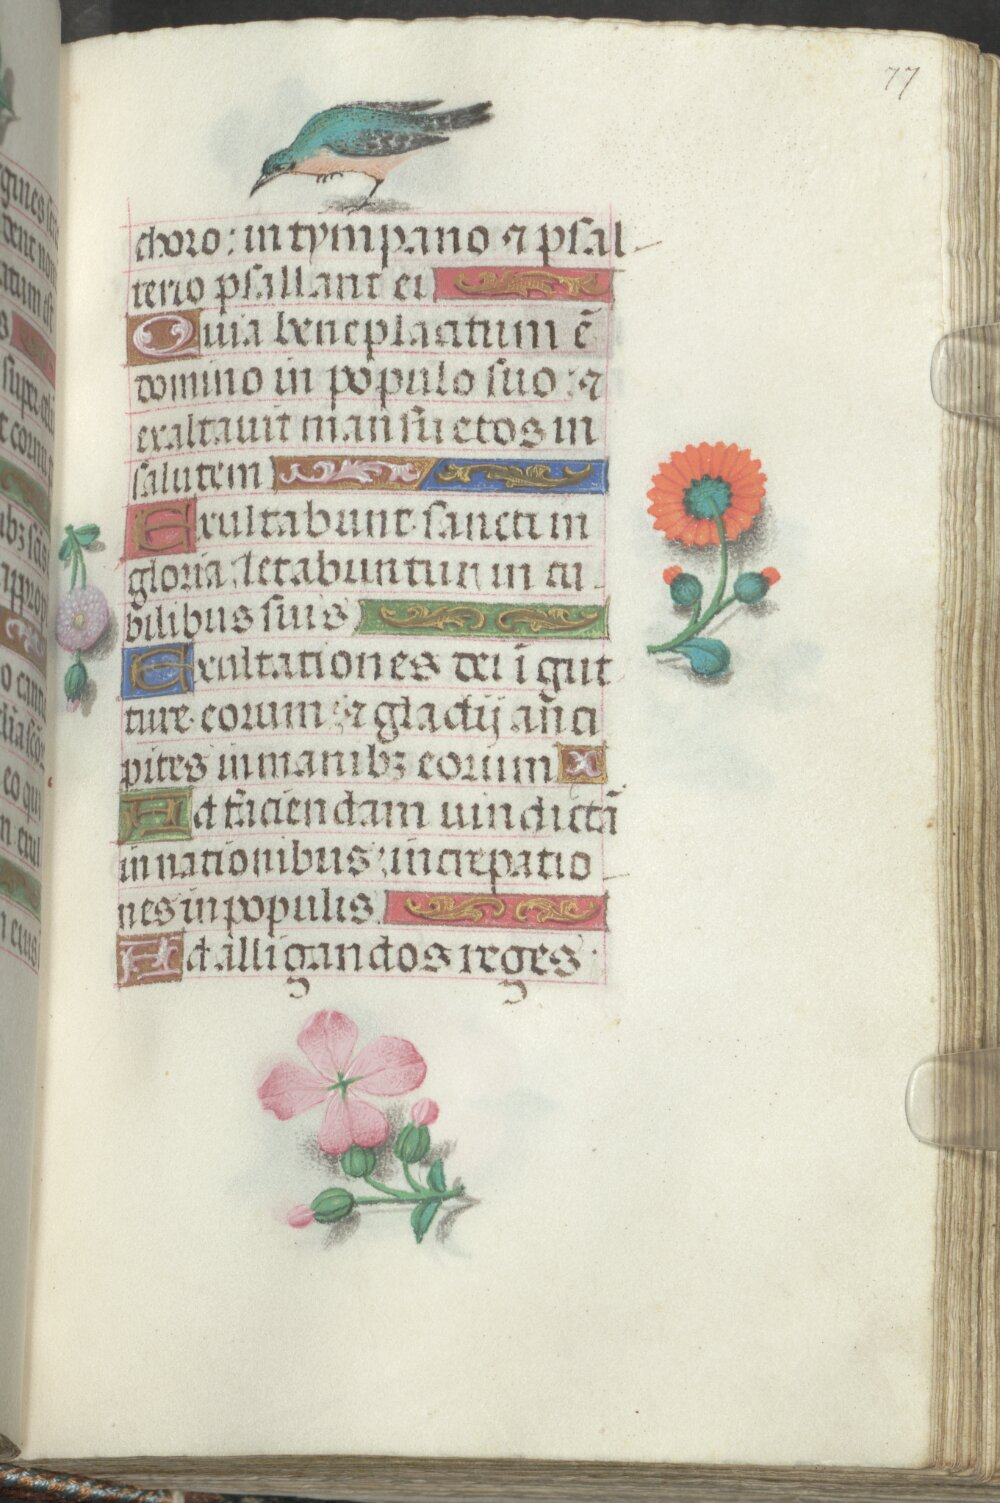 77
choro: in tympano ⁊ psal
terio psallant ei
Quia beneplacitum ē
domino in populo suo: ⁊
exaltauit mansuetos in
salutem
Exultabunt sancti in
gloria: letabuntur in cu
bilibus suis
Exultationes dei ī gut
ture eorum: ⁊ gladij anci
pites in manibꝫ eorum
Ad faciendam uindictā
in nationibus: increpatio
nes in populis
Ad alligandos reges